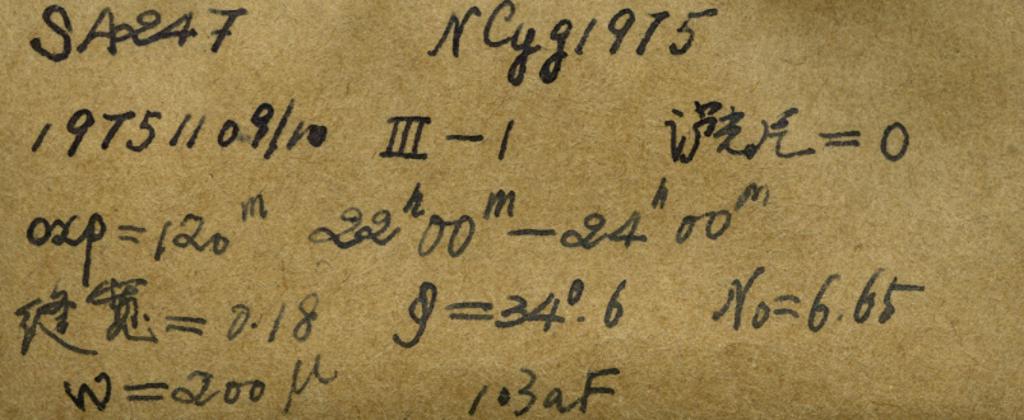 SA247 NCyg1975
1975 11 09/10 III-1 漏光片=0
exp=120ᵐ 22ʰ00ᵐ-24ʰ00ᵐ
缝宽=0.18 θ=34°.6 N₀=6.65
W=200μ 103aF